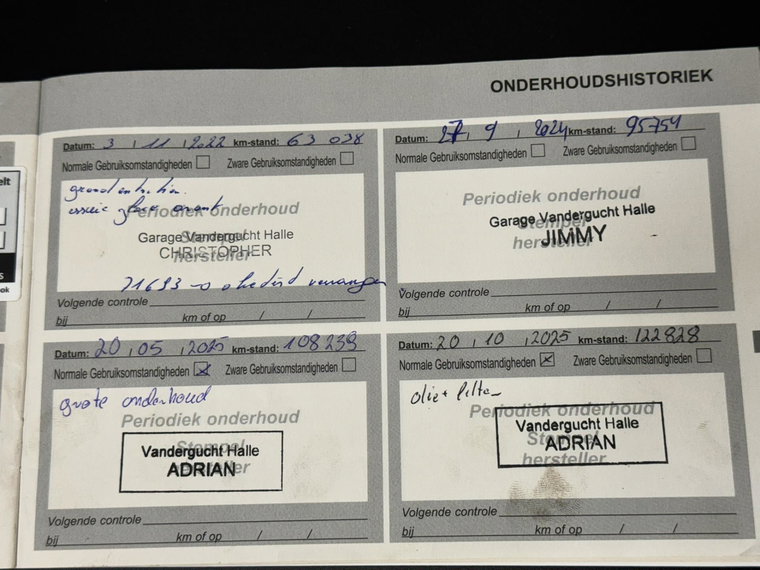 ONDERHOUDSHISTORIEK
Datum: 3 / 11 / 2022 km-stand: 63 038
Normale Gebruiksomstandigheden Zware Gebruiksomstandigheden
grand entretien
essuie glace avant
Periodiek onderhoud
Stempel
hersteller
Garage Vandergucht Halle
CHRISTOPHER
71693
Volgende controle
bij km of op / /
Datum: 27 / 9 / 2024 km-stand: 95754
Normale Gebruiksomstandigheden Zware Gebruiksomstandigheden
Periodiek onderhoud
Stempel
hersteller
Garage Vandergucht Halle
JIMMY
Volgende controle
bij km of op / /
Datum: 20 / 05 / 2025 km-stand: 108239
Normale Gebruiksomstandigheden Zware Gebruiksomstandigheden
grote onderhoud
Periodiek onderhoud
Stempel
hersteller
Vandergucht Halle
ADRIAN
Volgende controle
bij km of op / /
Datum: 20 / 10 / 2025 km-stand: 122828
Normale Gebruiksomstandigheden Zware Gebruiksomstandigheden
olie + filter
Periodiek onderhoud
Stempel
hersteller
Vandergucht Halle
ADRIAN
Volgende controle
bij km of op / /